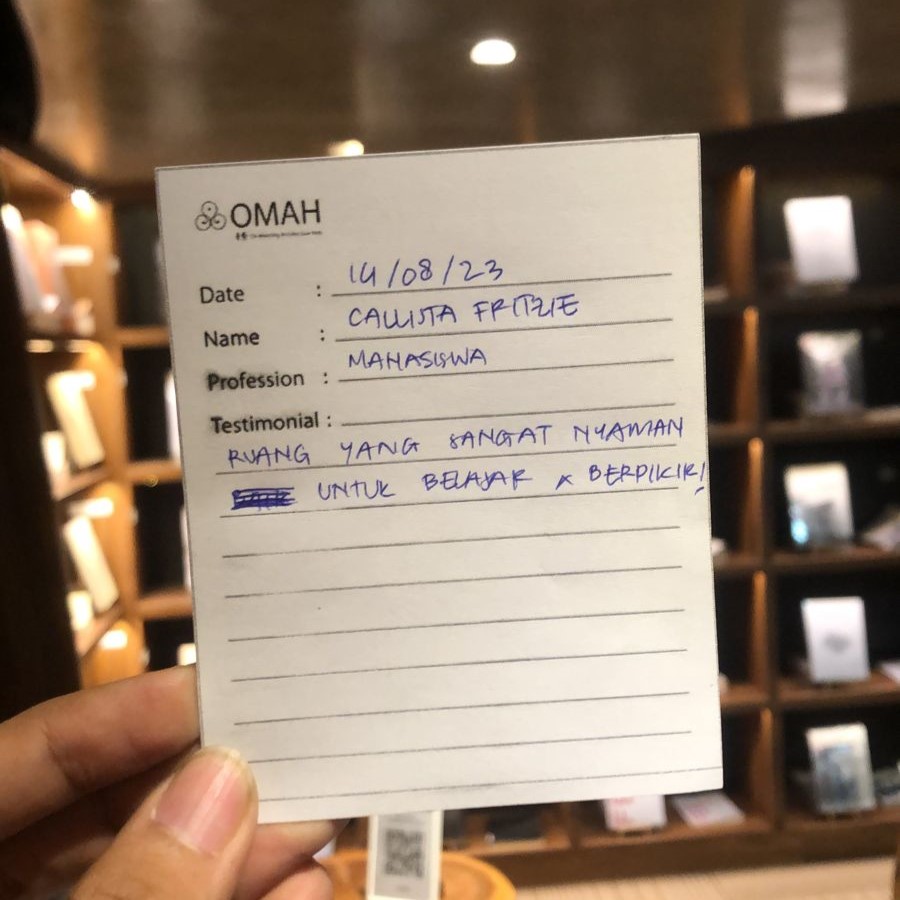 OMAH
Date : 14/08/23
Name : CALLISTA FRITZIE
Profession : MAHASISWA
Testimonial :
RUANG YANG SANGAT NYAMAN
UNTUK BELAJAR & BERPIKIR!